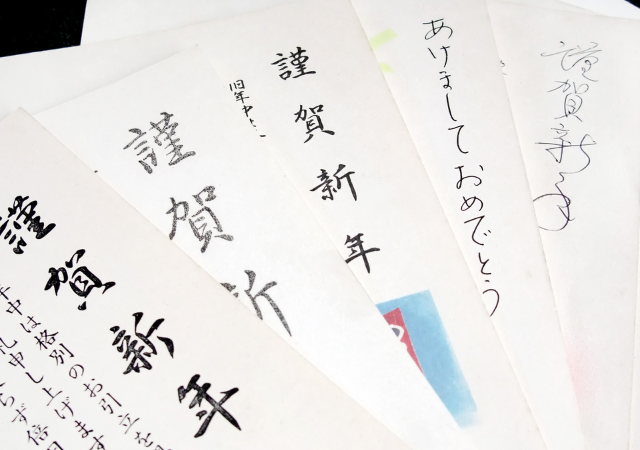 謹賀新年
あけましておめでとう
謹賀新年
旧年中
謹賀新
謹賀新年
年中は格別のお引立を
礼申し上げます
らず倍